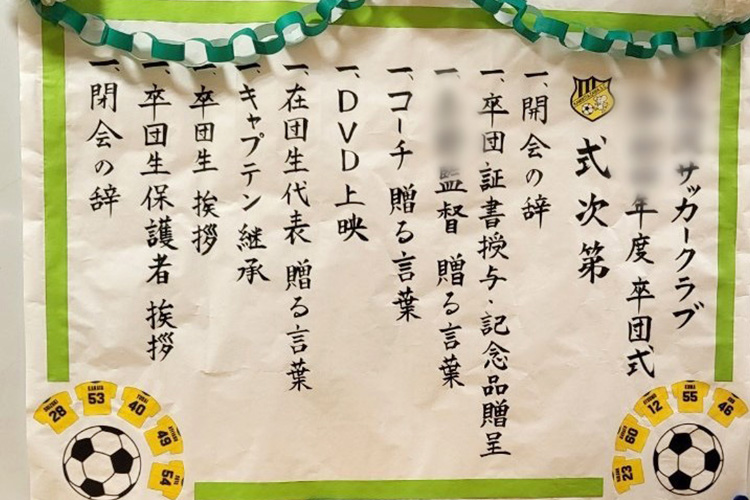 サッカークラブ
年度 卒団式
式次第
一、開会の辞
一、卒団証書授与・記念品贈呈
一、監督 贈る言葉
一、コーチ 贈る言葉
一、DVD上映
一、在団生代表 贈る言葉
一、キャプテン継承
一、卒団生 挨拶
一、卒団生保護者 挨拶
一、閉会の辞
28
53
40
49
54
23
60
12
55
46